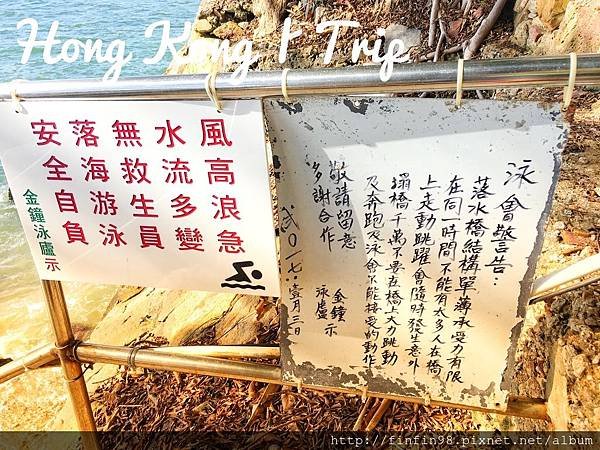 Hong Kong | Trip
風高浪急
水流多變
無救生員
落海游泳
安全自負
金鐘泳廬示
泳會警告：
落水橋結構單薄承受力有限
在同一時間不能有太多人在橋
上走動跳躍會隨時發生意外
塌橋千萬不要在橋上大力跳動
及奔跑及泳會不能接受的動作
敬請留意
多謝合作
金鐘
泳廬示
弍〇一七.壹月三日
http://finfin98.pixnet.net/album